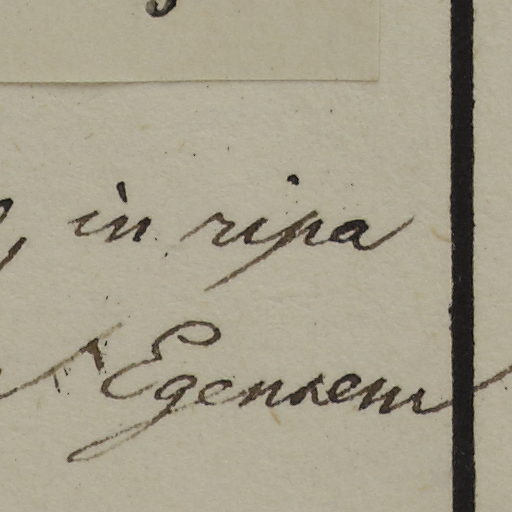 , in ripa
Egensem